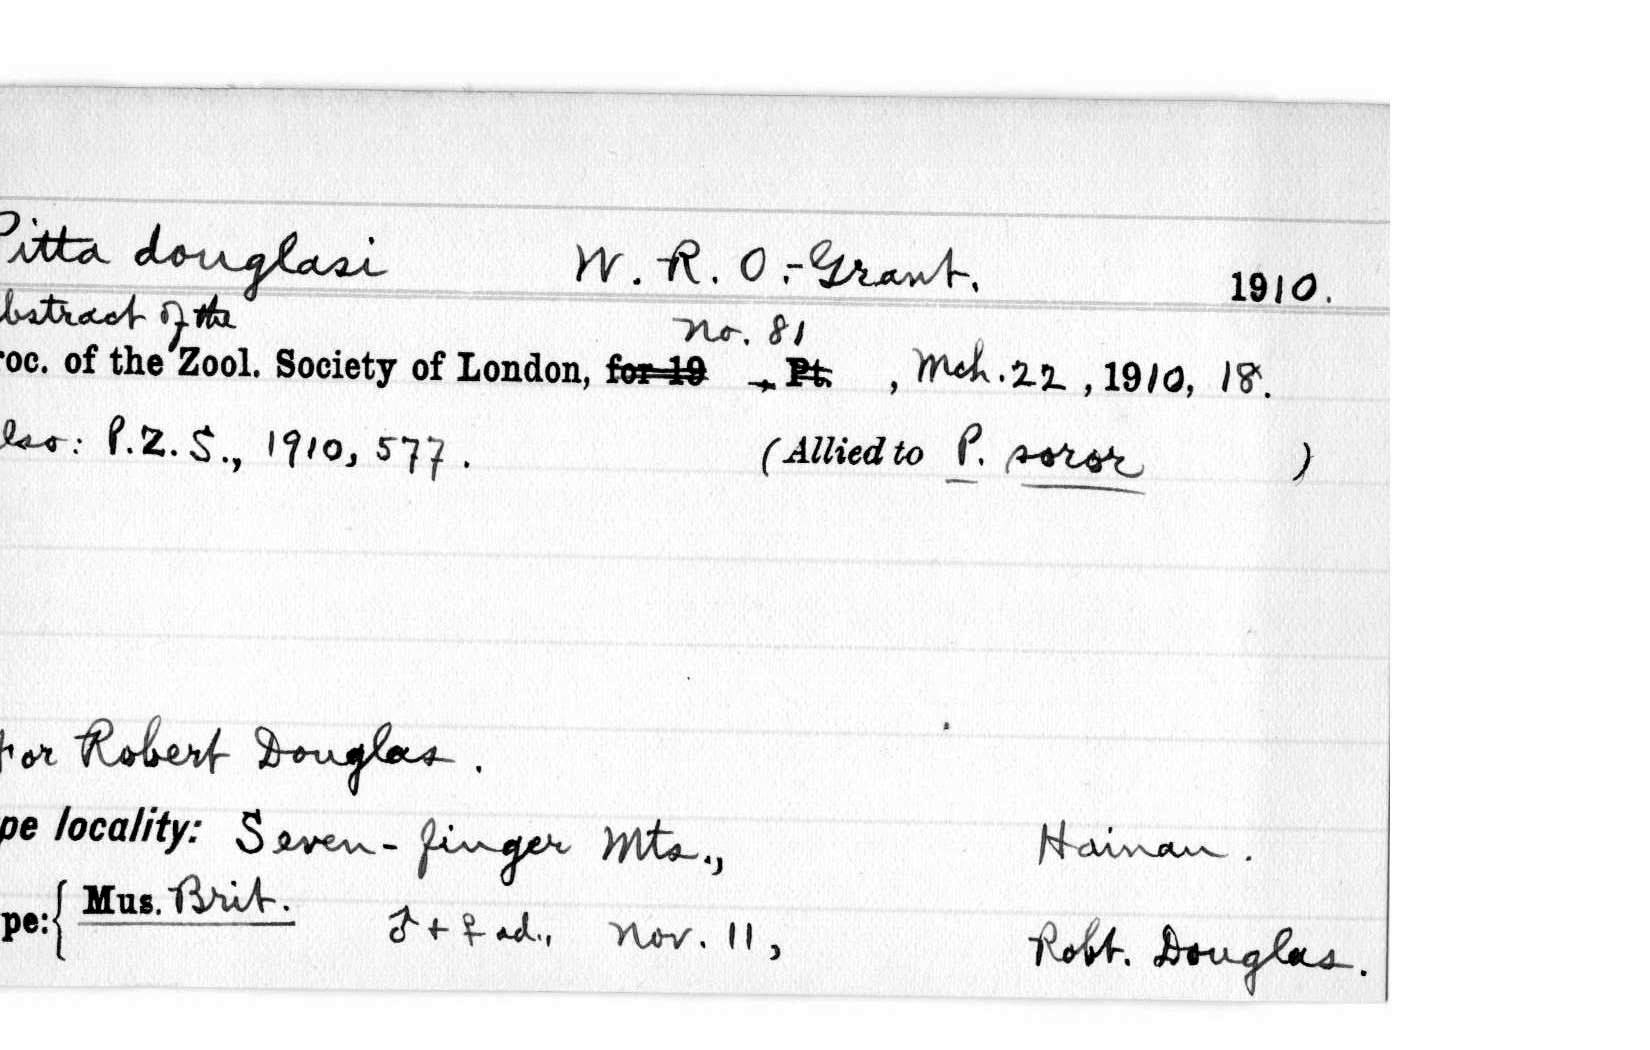 Pitta douglasi W. R. O.-Grant. 1910.
bstract of the no. 81
roc. of the Zool. Society of London, for 19 , Pt. , Mch. 22, 1910, 18.
lso: P.Z.S., 1910, 577. (Allied to P. soror )
For Robert Douglas.
pe locality: Seven-finger Mts., Hainan.
pe: { Mus. Brit. ♂ + ♀ ad., Nov. 11, Robt. Douglas.